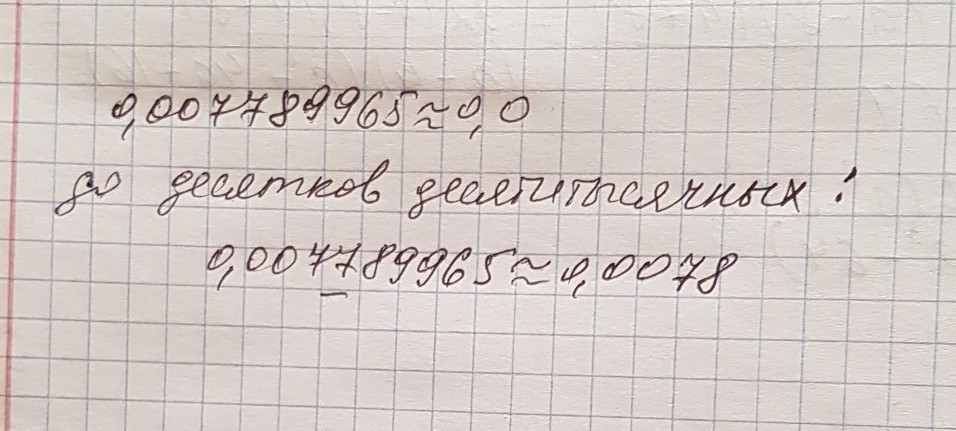 0,007789965≈0,0
до десятков десятитысячных:
0,007789965≈0,0078